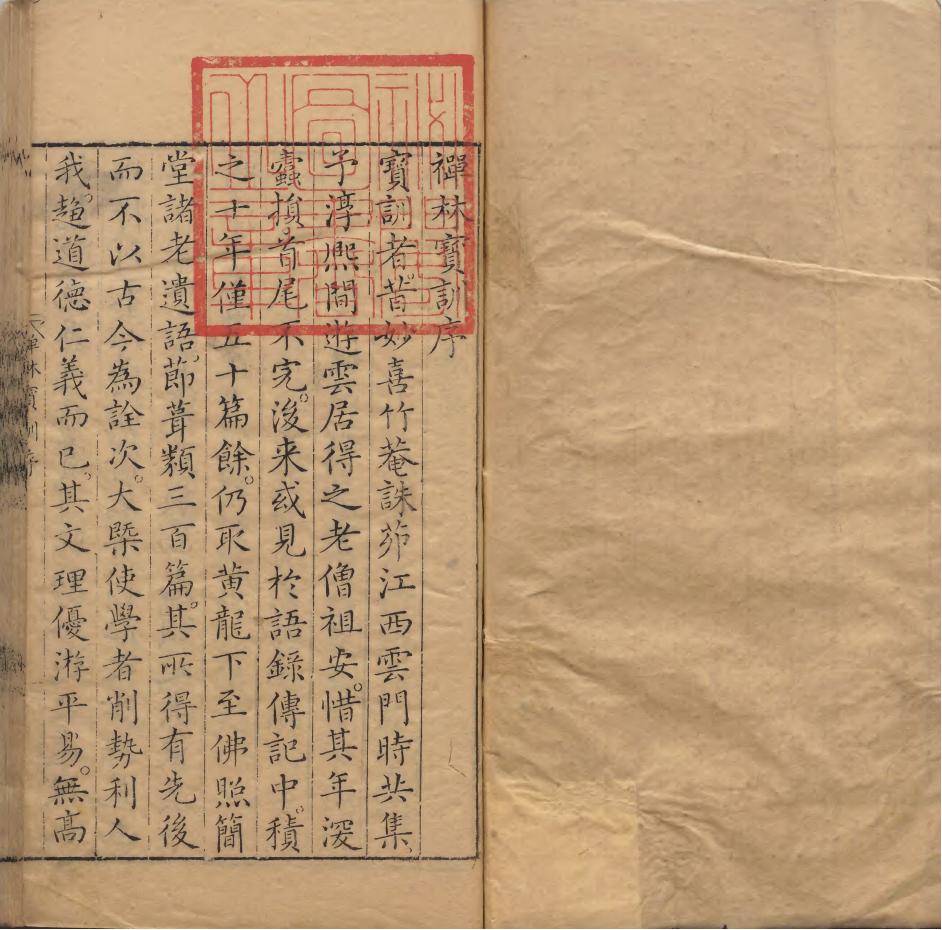 禪林寶訓序
寶訓者。昔妙喜竹菴誅茆江西雲門時共集。
予淳熈間遊雲居得之老僧祖安。惜其年深
蠧損。首尾不完。後来或見於語録傳記中。積
之十年僅五十篇餘。仍取黄龍下至佛照簡
堂諸老遺語。節葺類三百篇。其所得有先後
而不以古今為詮次。大槩使學者削勢利人
我。趍道德仁義而已。其文理優游平易。無高
禪林寶訓序